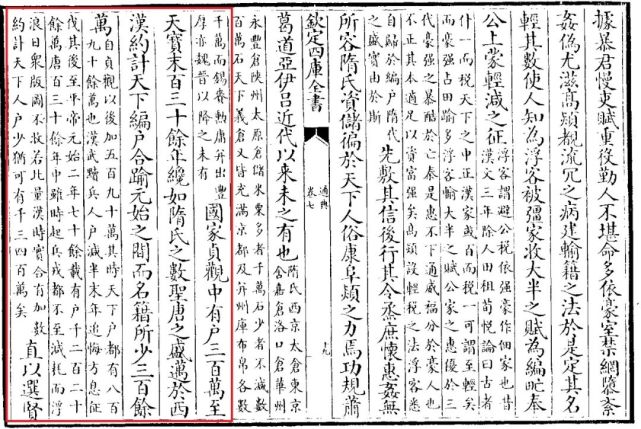 據暴君慢吏賦重役勤人不堪命多依豪室禁網隳紊
姦偽尤滋髙熲覩流冗之病建輸籍之法於是定其名
輕其數使人知為浮客被彊家收大半之賦為編甿奉
公上蒙輕減之征
浮客謂避公稅依强豪作佃家也昔
漢文三年除人田租荀恱論曰古者
什一而稅天下之中正漢家或百而稅一可謂至輕矣
而豪强占田踰多浮客輸大半之賦公家之惠優於三
代豪强之暴酷於亡秦是惠不下通威福分於豪人也
不正其本適足以資富强矣髙熲設輕稅之法浮客悉
自歸於編戶隋代
之盛實由於斯
先敷其信後行其令烝庶懷惠姦無
所容隋氏資儲徧於天下人俗康阜熲之力焉功規蕭
欽定四庫全書
通典
卷七
十九
葛道亞伊吕近代以來未之有也
隋氏西京太倉東京
含嘉倉洛口倉華州
永豐倉陜州太原倉儲米粟多者千萬石少者不減數
百萬石天下義倉又皆充滿京都及并州庫布帛各數
千萬而錫賚勲庸并出豐
厚亦魏晉以降之未有
國家貞觀中有戶三百萬至
天寳末百三十餘年纔如隋氏之數聖唐之盛邁於西
漢約計天下編戶合踰元始之間而名籍所少三百餘
萬
自貞觀以後加五百九十萬其時天下戶都有八百
九十餘萬也漢武黷兵人戶減半末年追悔方息征
伐其後至平帝元始二年七十餘載有戶千二百二十
餘萬唐百三十餘年中雖時起兵戎都不至減耗而浮
浪日衆版圖不收若比量漢時實合有加數
約計天下人戶少猶可有千三四百萬矣
直以選賢